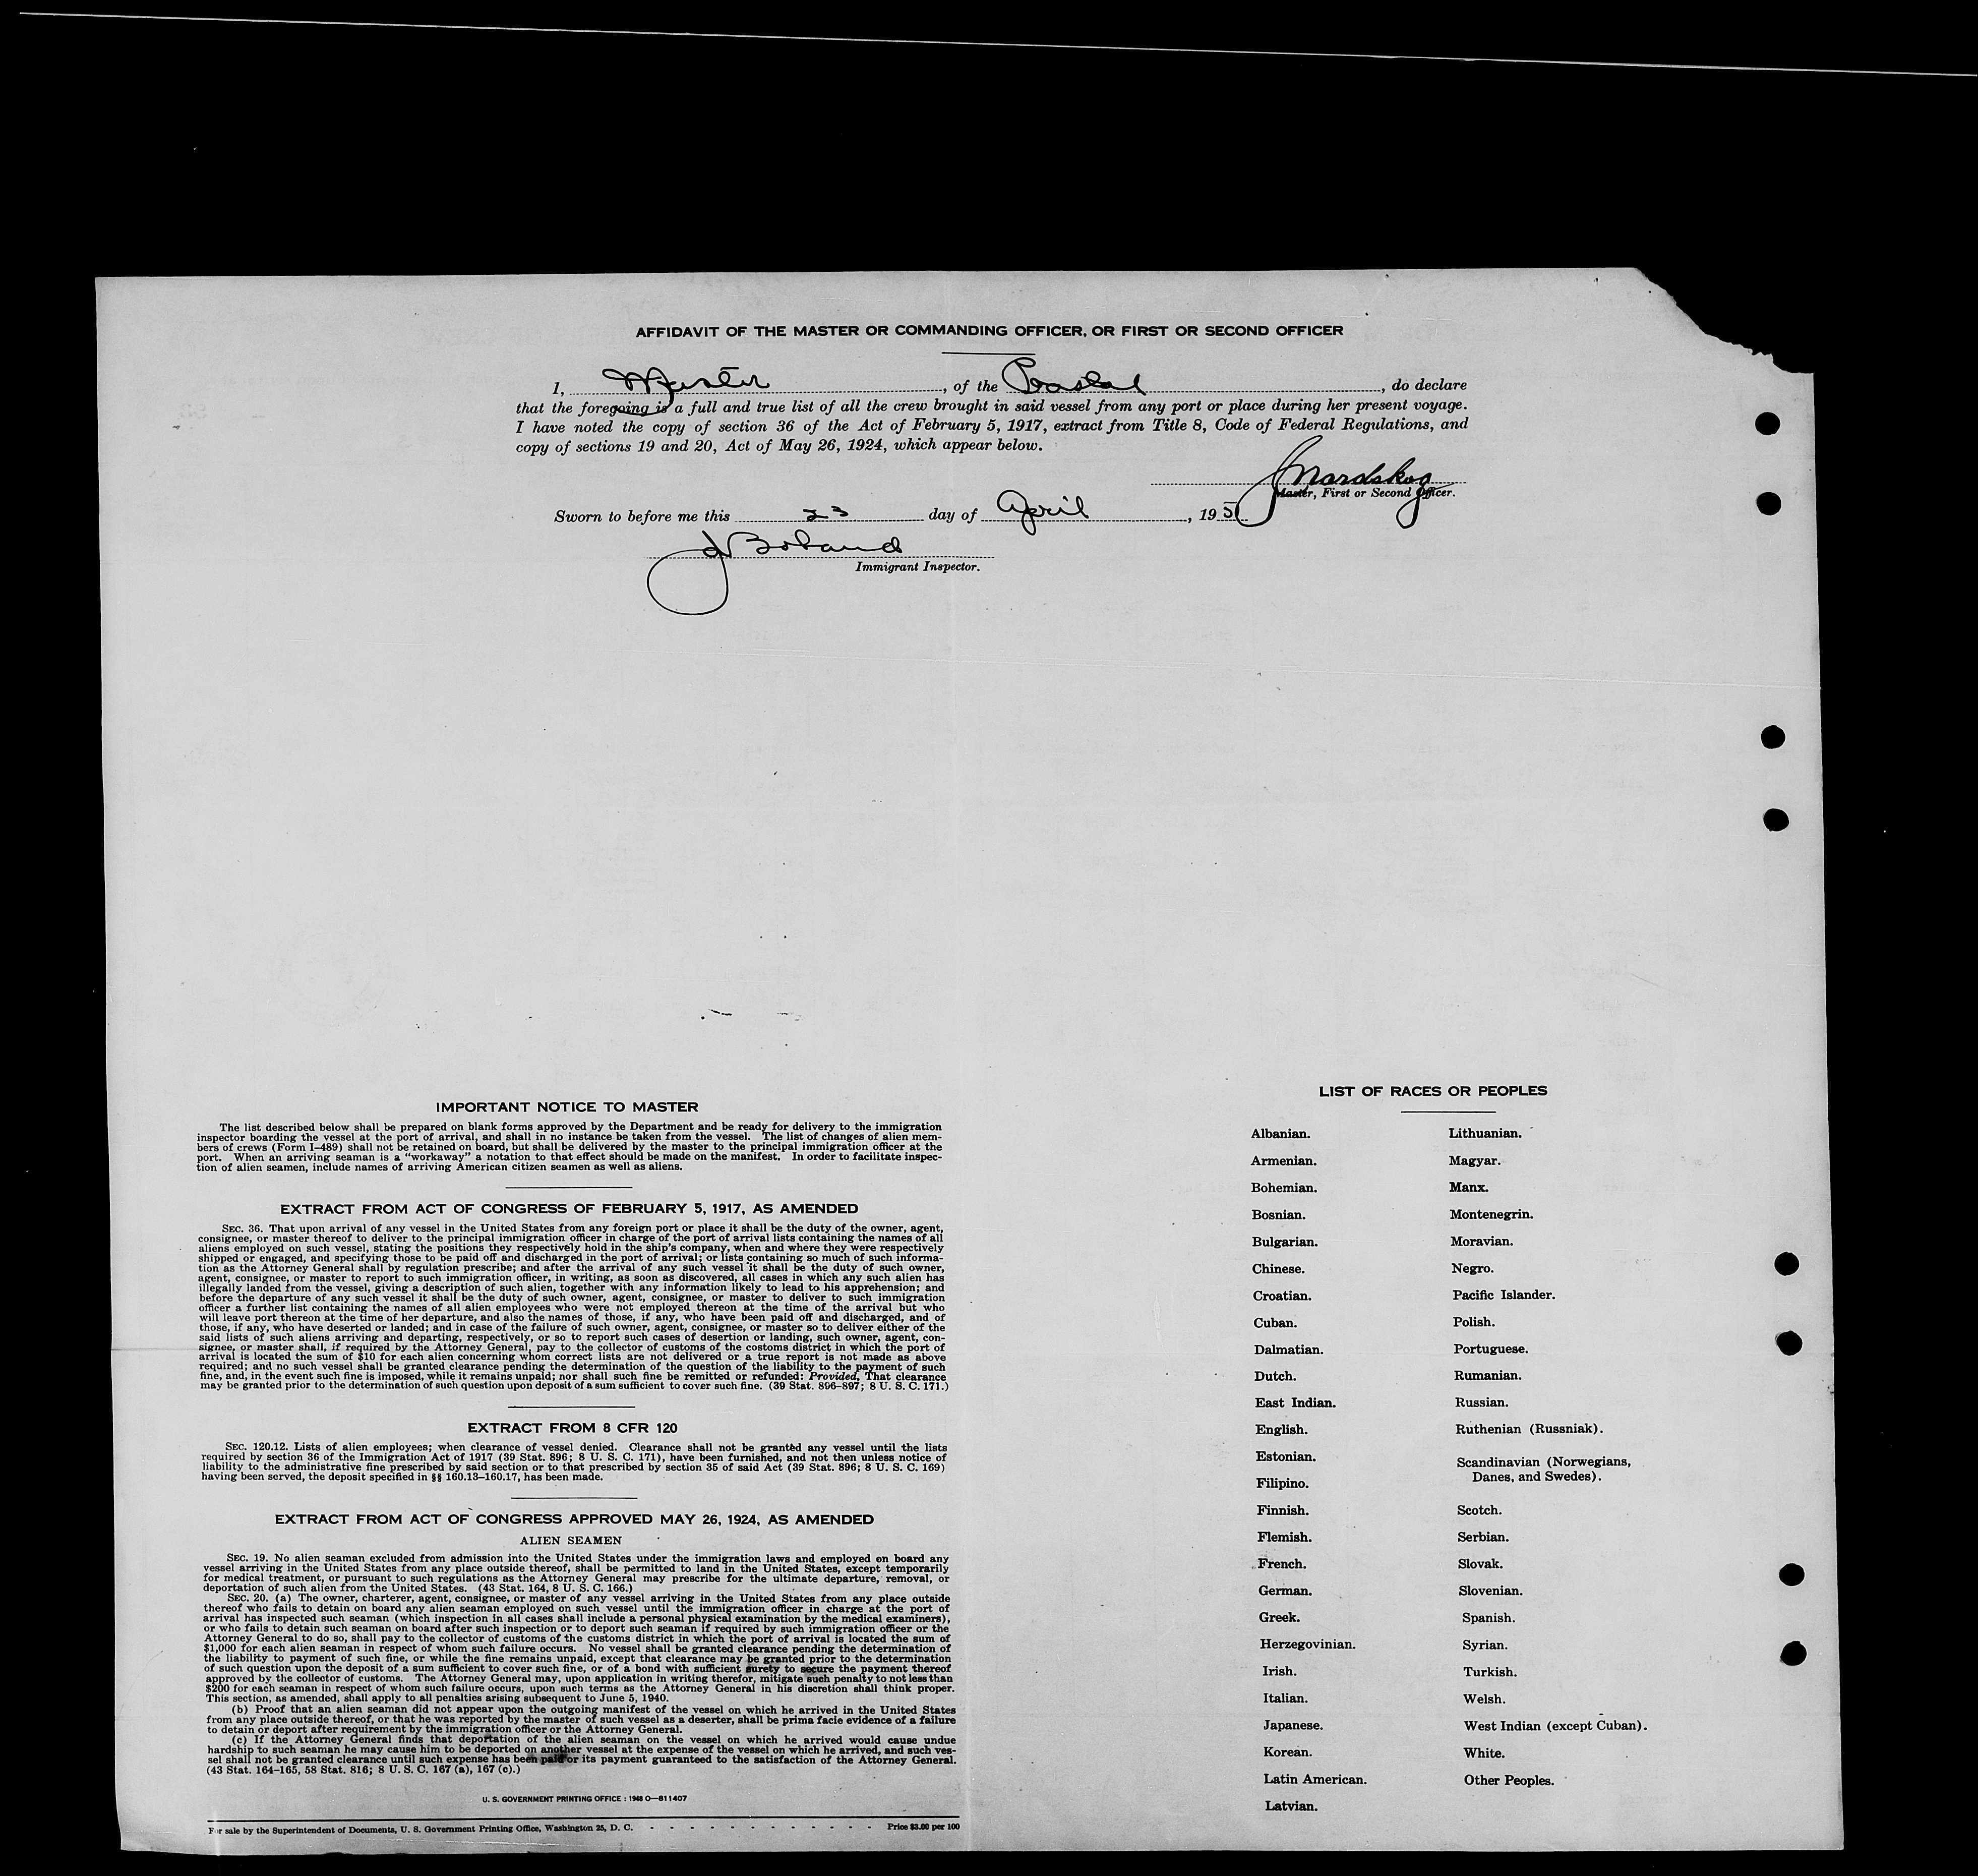 AFFIDAVIT OF THE MASTER OR COMMANDING OFFICER, OR FIRST OR SECOND OFFICER
I, Master, of the, do declare
that the foregoing is a full and true list of all the crew brought in said vessel from any port or place during her present voyage.
I have noted the copy of section 36 of the Act of February 5, 1917, extract from Title 8, Code of Federal Regulations, and
copy of sections 19 and 20, Act of May 26, 1924, which appear below.
Nordskog
Master, First or Second Officer.
Sworn to before me this 23 day of April, 1951
J Boland
Immigrant Inspector.
IMPORTANT NOTICE TO MASTER
The list described below shall be prepared on blank forms approved by the Department and be ready for delivery to the immigration
inspector boarding the vessel at the port of arrival, and shall in no instance be taken from the vessel. The list of changes of alien mem-
bers of crews (Form I-489) shall not be retained on board, but shall be delivered by the master to the principal immigration officer at the
port. When an arriving seaman is a "workaway" a notation to that effect should be made on the manifest. In order to facilitate inspec-
tion of alien seamen, include names of arriving American citizen seamen as well as aliens.
EXTRACT FROM ACT OF CONGRESS OF FEBRUARY 5, 1917, AS AMENDED
SEC. 36. That upon arrival of any vessel in the United States from any foreign port or place it shall be the duty of the owner, agent,
consignee, or master thereof to deliver to the principal immigration officer in charge of the port of arrival lists containing the names of all
aliens employed on such vessel, stating the positions they respectively hold in the ship's company, when and where they were respectively
shipped or engaged, and specifying those to be paid off and discharged in the port of arrival; or lists containing so much of such informa-
tion as the Attorney General shall by regulation prescribe; and after the arrival of any such vessel it shall be the duty of such owner,
agent, consignee, or master to report to such immigration officer, in writing, as soon as discovered, all cases in which any such alien has
illegally landed from the vessel, giving a description of such alien, together with any information likely to lead to his apprehension; and
before the departure of any such vessel it shall be the duty of such owner, agent, consignee, or master to deliver to such immigration
officer a further list containing the names of all alien employees who were not employed thereon at the time of the arrival but who
will leave port thereon at the time of her departure, and also the names of those, if any, who have been paid off and discharged, and of
those, if any, who have deserted or landed; and in case of the failure of such owner, agent, consignee, or master so to deliver either of the
said lists of such aliens arriving and departing, respectively, or so to report such cases of desertion or landing, such owner, agent, con-
signee, or master shall, if required by the Attorney General, pay to the collector of customs of the costoms district in which the port of
arrival is located the sum of $10 for each alien concerning whom correct lists are not delivered or a true report is not made as above
required; and no such vessel shall be granted clearance pending the determination of the question of the liability to the payment of such
fine, and, in the event such fine is imposed, while it remains unpaid; nor shall such fine be remitted or refunded: Provided, That clearance
may be granted prior to the determination of such question upon deposit of a sum sufficient to cover such fine. (39 Stat. 896-897; 8 U. S. C. 171.)
EXTRACT FROM 8 CFR 120
SEC. 120.12. Lists of alien employees; when clearance of vessel denied. Clearance shall not be granted any vessel until the lists
required by section 36 of the Immigration Act of 1917 (39 Stat. 896; 8 U. S. C. 171), have been furnished, and not then unless notice of
liability to the administrative fine prescribed by said section or to that prescribed by section 35 of said Act (39 Stat. 896; 8 U. S. C. 169)
having been served, the deposit specified in §§ 160.13-160.17, has been made.
EXTRACT FROM ACT OF CONGRESS APPROVED MAY 26, 1924, AS AMENDED
ALIEN SEAMEN
SEC. 19. No alien seaman excluded from admission into the United States under the immigration laws and employed on board any
vessel arriving in the United States from any place outside thereof, shall be permitted to land in the United States, except temporarily
for medical treatment, or pursuant to such regulations as the Attorney General may prescribe for the ultimate departure, removal, or
deportation of such alien from the United States. (43 Stat. 164, 8 U. S. C. 166.)
SEC. 20. (a) The owner, charterer, agent, consignee, or master of any vessel arriving in the United States from any place outside
thereof who fails to detain on board any alien seaman employed on such vessel until the immigration officer in charge at the port of
arrival has inspected such seaman (which inspection in all cases shall include a personal physical examination by the medical examiners),
or who fails to detain such seaman on board after such inspection or to deport such seaman if required by such immigration officer or the
Attorney General to do so, shall pay to the collector of customs of the customs district in which the port of arrival is located the sum of
$1,000 for each alien seaman in respect of whom such failure occurs. No vessel shall be granted clearance pending the determination of
the liability to payment of such fine, or while the fine remains unpaid, except that clearance may be granted prior to the determination
of such question upon the deposit of a sum sufficient to cover such fine, or of a bond with sufficient surety to secure the payment thereof
approved by the collector of customs. The Attorney General may, upon application in writing therefor, mitigate such penalty to not less than
$200 for each seaman in respect of whom such failure occurs, upon such terms as the Attorney General in his discretion shall think proper.
This section, as amended, shall apply to all penalties arising subsequent to June 5, 1940.
(b) Proof that an alien seaman did not appear upon the outgoing manifest of the vessel on which he arrived in the United States
from any place outside thereof, or that he was reported by the master of such vessel as a deserter, shall be prima facie evidence of a failure
to detain or deport after requirement by the immigration officer or the Attorney General.
(c) If the Attorney General finds that deportation of the alien seaman on the vessel on which he arrived would cause undue
hardship to such seaman he may cause him to be deported on another vessel at the expense of the vessel on which he arrived, and such ves-
sel shall not be granted clearance until such expense has been paid or its payment guaranteed to the satisfaction of the Attorney General.
(43 Stat. 164-165, 58 Stat. 816; 8 U. S. C. 167 (a), 167 (c).)
U. S. GOVERNMENT PRINTING OFFICE : 1948 O—811407
For sale by the Superintendent of Documents, U. S. Government Printing Office, Washington 25, D. C. - - - - - - - - - - - - Price $3.00 per 100
LIST OF RACES OR PEOPLES
Albanian.
Armenian.
Bohemian.
Bosnian.
Bulgarian.
Chinese.
Croatian.
Cuban.
Dalmatian.
Dutch.
East Indian.
English.
Estonian.
Filipino.
Finnish.
Flemish.
French.
German.
Greek.
Herzegovinian.
Irish.
Italian.
Japanese.
Korean.
Latin American.
Latvian.
Lithuanian.
Magyar.
Manx.
Montenegrin.
Moravian.
Negro.
Pacific Islander.
Polish.
Portuguese.
Rumanian.
Russian.
Ruthenian (Russniak).
Scandinavian (Norwegians,
Danes, and Swedes).
Scotch.
Serbian.
Slovak.
Slovenian.
Spanish.
Syrian.
Turkish.
Welsh.
West Indian (except Cuban).
White.
Other Peoples.